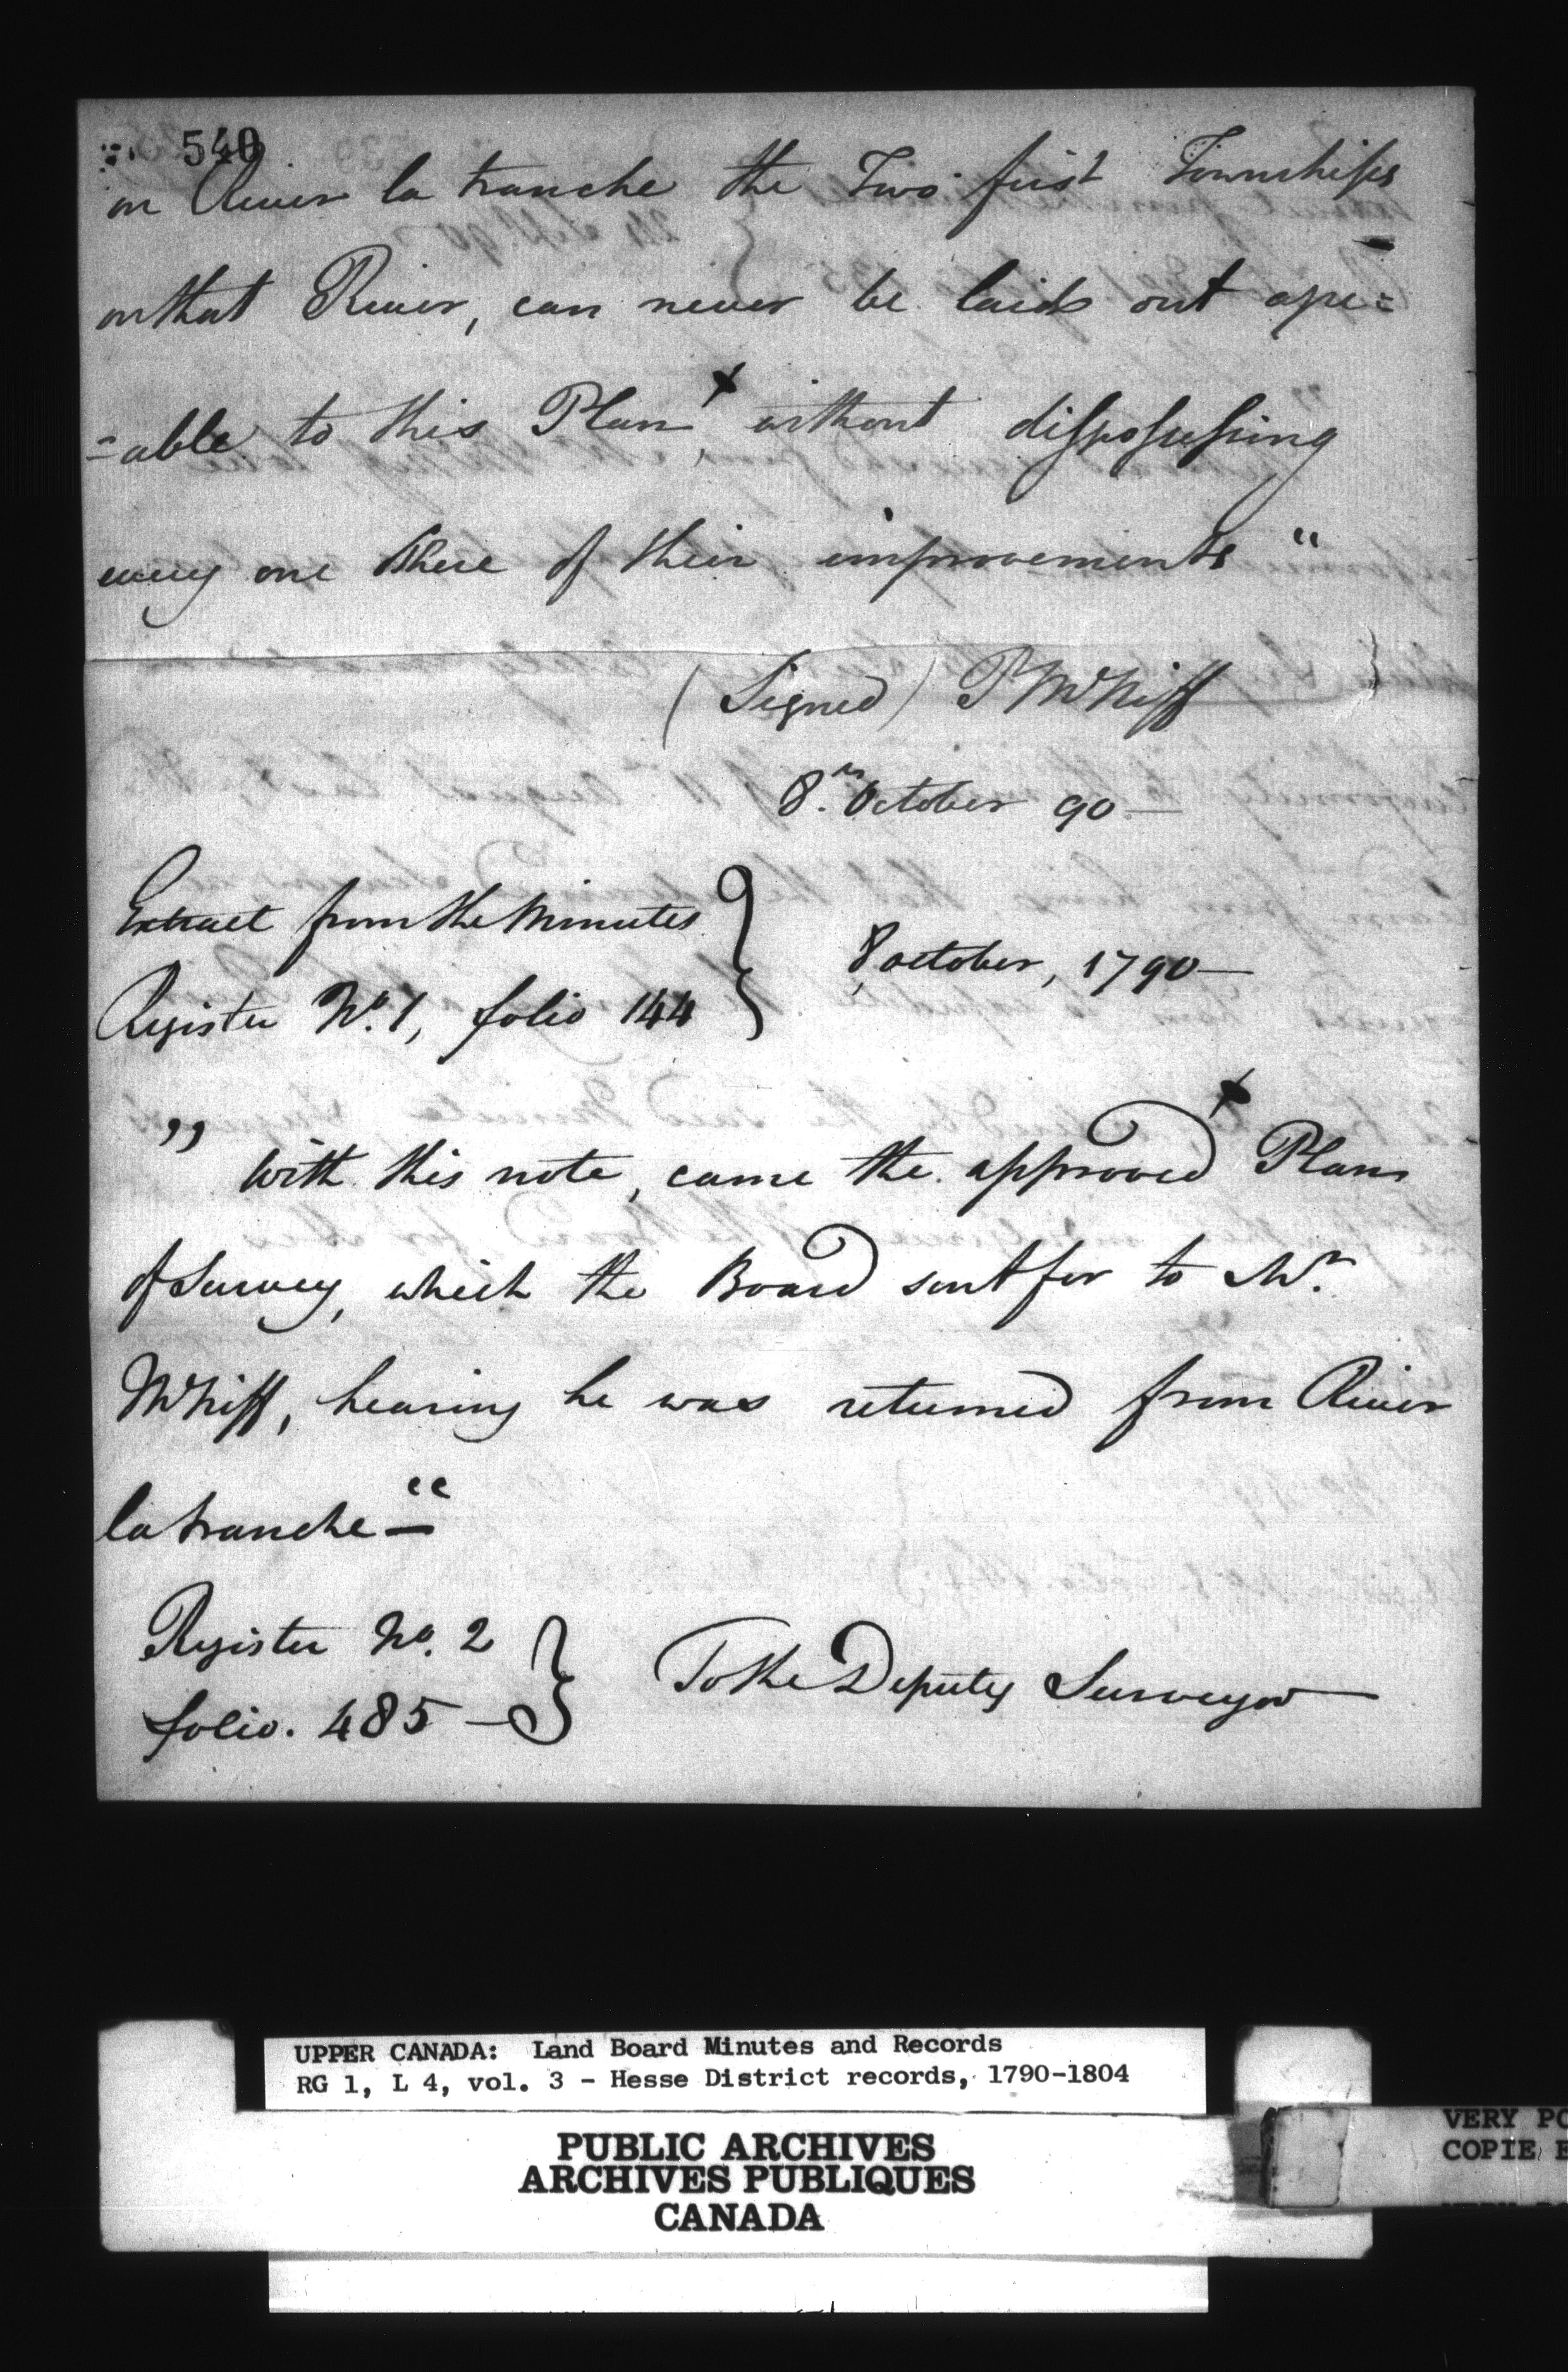 540
on River la tranche the Two first Townships
on that River, can never be laid out agre=
=able to this Plan, without dispossessing
every one there of their improvements"
(Signed) P McNiff
8th. October 90 —
Extract from the Minutes
Register No. 1, folio 144
8, october, 1790 —
" With this note, came the approved Plan
of Survey, which the Board sent for to Mr.
McNiff, hearing he was returned from River
la tranche — "
Register No. 2
folio. 485 —
To the Deputy Surveyor —
UPPER CANADA: Land Board Minutes and Records
RG 1, L 4, vol. 3 - Hesse District records, 1790-1804
PUBLIC ARCHIVES
ARCHIVES PUBLIQUES
CANADA
VERY PO
COPIE E